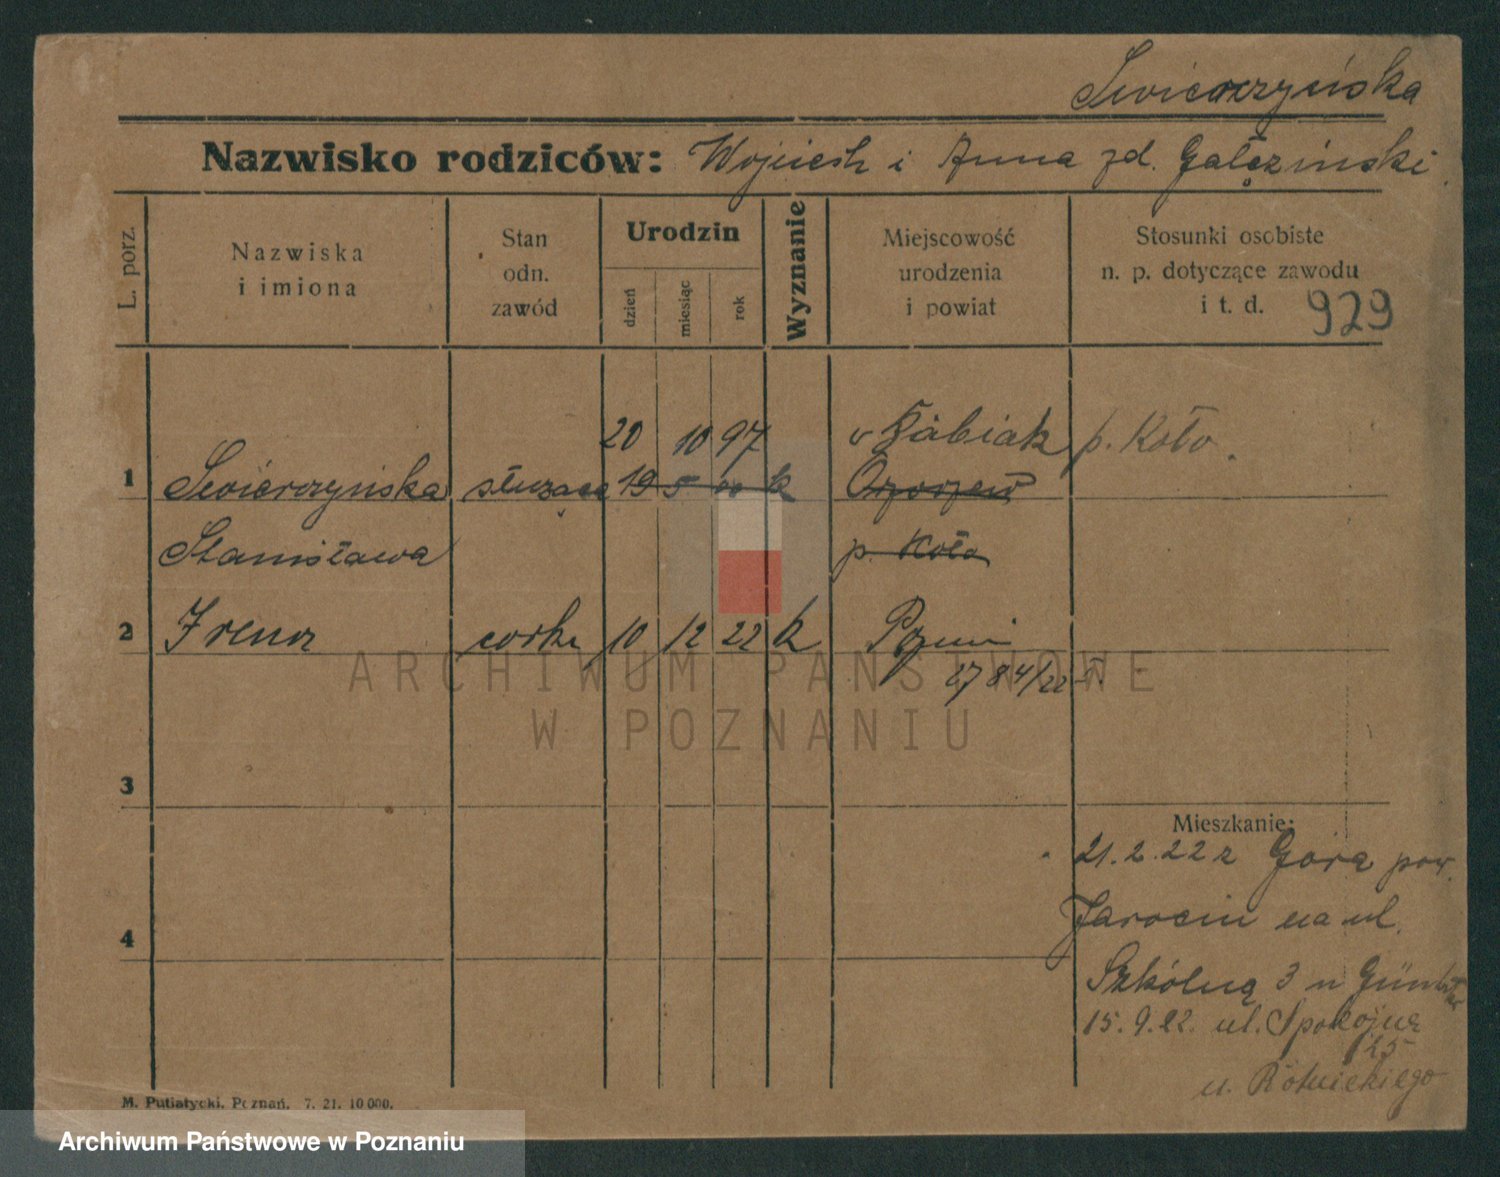 Swierczyńska
Nazwisko rodziców: Wojciech i Anna zd. Gałęzinski.
L. porz.
Nazwiska
i imiona
Stan
odn.
zawód
Urodzin
dzień
miesiąc
rok
Wyznanie
Miejscowość
urodzenia
i powiat
Stosunki osobiste
n. p. dotyczące zawodu
i t. d. 929
20 10 97 Babiak p. Koło.
1 Swierczyńska służąca 19 5 00 k
Stanisława p. Koło
2 Irena córka 10 12 22 k
2784/22
3
Mieszkanie:
21.2.22 z Góra pow.
4 Jarocin na ul.
Szkólną 3 u
15.9.22. ul. Spokojna
25
u.
M. Putiatycki, Poznań. 7. 21. 10 000.
ARCHIWUM PAŃSTWOWE
W POZNANIU
Archiwum Państwowe w Poznaniu